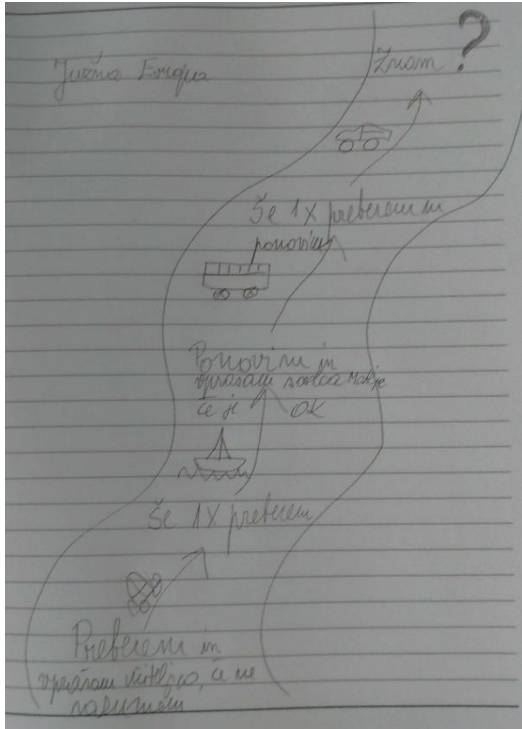 Južna Evropa
Znam ?
Še 1X preberem in
ponovim
Ponovim in
vprašam
če je OK
Še 1X preberem
Preberem in
vprašam učiteljico, če ne
razumem